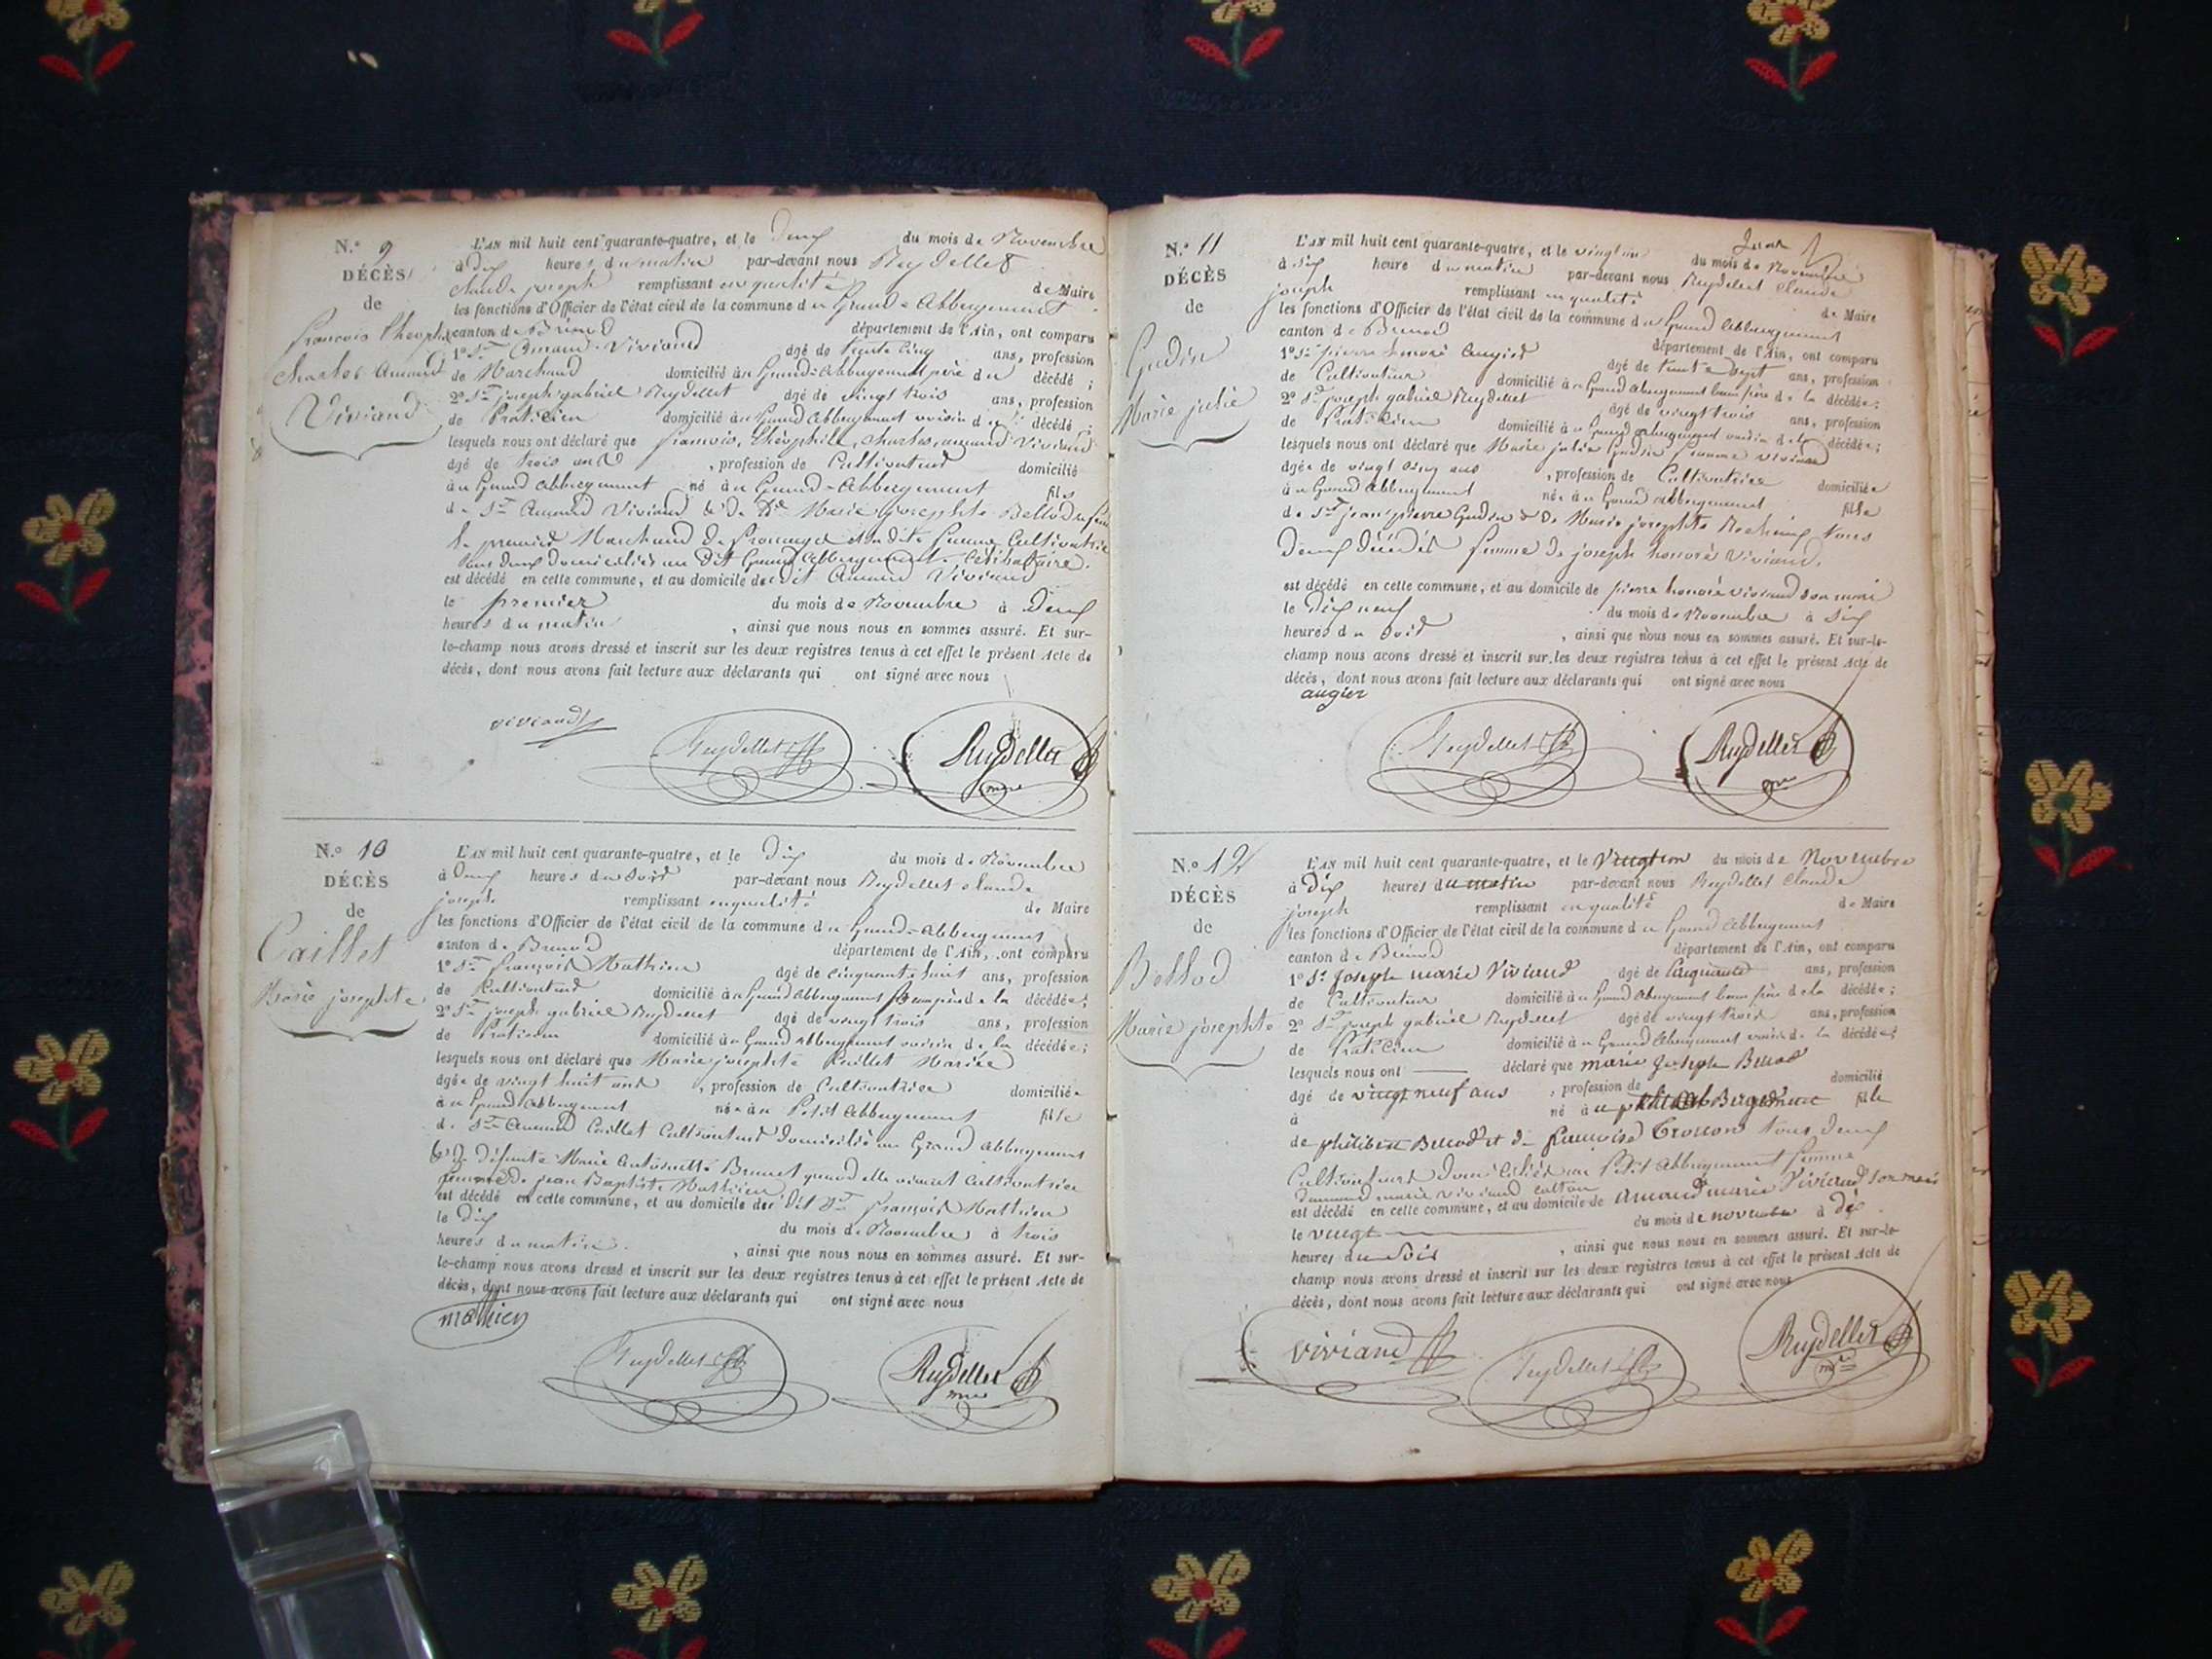 N.º 9
DÉCÈS
de
françois Théophile
Charles Amand
Viviand
L'AN mil huit cent quarante-quatre, et le Deux du mois de Novembre
à Dix heures du matin par-devant nous Reydellet
Claude joseph remplissant en qualité de Maire
les fonctions d'Officier de l'état civil de la commune du Grand-Abbergement
canton de Brénod département de l'Ain, ont comparu
1º Sr Amand Viviand âgé de trente cinq ans, profession
de Marchand domicilié au Grand-Abbergement père du décédé ;
2º Sr joseph gabriel Reydellet âgé de vingt trois ans, profession
de Praticien domicilié au Grand Abbergement voisin du décédé ;
lesquels nous ont déclaré que françois, Théophile, Charles, amand Viviand
âgé de trois ans , profession de Cultivateur domicilié
au Grand Abbergement né au Grand-Abbergement fils
de Sr Amand Viviand & de De Marie josephte Bellod
le premier Marchand de fromage et la dite femme Cultivatrice
tous deux domiciliés au dit Grand Abbergement. Célibataire.
est décédé en cette commune, et au domicile du dit Amand Viviand
le premier du mois de Novembre à Deux
heures du matin , ainsi que nous nous en sommes assuré. Et sur-
le-champ nous avons dressé et inscrit sur les deux registres tenus à cet effet le présent Acte de
décès, dont nous avons fait lecture aux déclarants qui ont signé avec nous
viviand
Reydellet
Reydellet
mre
N.º 10
DÉCÈS
de
Caillet
Marie josephte
L'AN mil huit cent quarante-quatre, et le Dix du mois de Novembre
à Deux heures du Soir par-devant nous Reydellet Claude
joseph remplissant en qualité de Maire
les fonctions d'Officier de l'état civil de la commune du Grand-Abbergement
canton de Brenod département de l'Ain, ont comparu
1º Sr françois Mathieu âgé de cinquante huit ans, profession
de Cultivateur domicilié au Grand Abbergement Beau père de la décédée ;
2º Sr joseph gabriel Reydellet âgé de vingt trois ans, profession
de Praticien domicilié au Grand Abbergement voisin de la décédée ;
lesquels nous ont déclaré que Marie josephte Caillet Mariée
âgée de vingt huit ans , profession de Cultivatrice domiciliée
au Grand Abbergement née au Petit Abbergement fille
de Sr Amand Caillet Cultivateur domicilié au Grand Abbergement
& de défunte Marie Antoinette Brunet quand elle vivait Cultivatrice
femme de jean Baptiste Mathieu
est décédé en cette commune, et au domicile du dit Sr françois Mathieu
le Dix du mois de Novembre à trois
heures du matin. , ainsi que nous nous en sommes assuré. Et sur-
le-champ nous avons dressé et inscrit sur les deux registres tenus à cet effet le présent Acte de
décès, dont nous avons fait lecture aux déclarants qui ont signé avec nous
mathieu
Reydellet
Reydellet
mre
N.º 11
DÉCÈS
de
Gudin
Marie julie
L'AN mil huit cent quarante-quatre, et le vingt un du mois de Novembre
à dix heure du matin par-devant nous Reydellet Claude
joseph remplissant en qualité de Maire
les fonctions d'Officier de l'état civil de la commune du Grand Abbergement
canton de Brenod département de l'Ain, ont comparu
1º Sr pierre honoré Augier âgé de trente sept ans, profession
de Cultivateur domicilié au Grand Abergement beau frère de la décédée ;
2º Sr joseph gabriel Reydellet âgé de vingt trois ans, profession
de Praticien domicilié au Grand Abergement voisin de la décédée ;
lesquels nous ont déclaré que Marie julie Gudin femme Viviand
âgée de vingt cinq ans , profession de Cultivatrice domiciliée
au Grand Abbergement née au Grand Abbergement fille
de Sr jean pierre Gudin & de Marie josephte tous
Deux décédés femme de joseph honoré Viviand.
est décédé en cette commune, et au domicile de pierre honoré viviand son mari
le Dix neuf du mois de Novembre à Six
heures du Soir , ainsi que nous nous en sommes assuré. Et sur-le-
champ nous avons dressé et inscrit sur les deux registres tenus à cet effet le présent Acte de
décès, dont nous avons fait lecture aux déclarants qui ont signé avec nous
augier
Reydellet
Reydellet
mre
N.º 12
DÉCÈS
de
Bellod
Marie josephte
L'AN mil huit cent quarante-quatre, et le Vingt un du mois de Novembre
à Dix heures du matin par-devant nous Reydellet Claude
joseph remplissant en qualité de Maire
les fonctions d'Officier de l'état civil de la commune du Grand Abbergement
canton de Brénod département de l'Ain, ont comparu
1º Sr Joseph marie Viviand âgé de Cinquante ans, profession
de Cultivateur domicilié au Grand Abergement beau frère de la décédée ;
2º Sr joseph gabriel Reydellet âgé de vingt trois ans, profession
de Praticien domicilié au Grand Abergement voisin de la décédée ;
lesquels nous ont déclaré que marie Joseph Bellod
âgé de vingt neuf ans , profession de domicilié
à né au petit AbBergement fille
de philibert Bellod et de françoise tous deux
Cultivateurs domiciliés au Petit Abbergement femme
Damand marie Viviand
est décédé en cette commune, et au domicile de Amand marie Viviand son mari
le vingt du mois de novembre à dix
heures du Soir , ainsi que nous nous en sommes assuré. Et sur-le-
champ nous avons dressé et inscrit sur les deux registres tenus à cet effet le présent Acte de
décès, dont nous avons fait lecture aux déclarants qui ont signé avec nous
viviand
Reydellet
Reydellet
mre